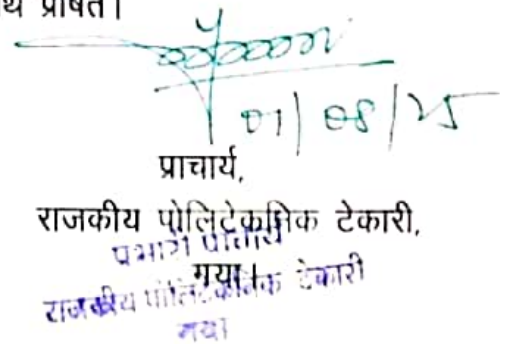 प्रेषित।
01/08/25
प्राचार्य,
राजकीय पोलिटेकनिक टेकारी,
प्रभारी प्राचार्य
गया।
राजकीय पॉलिटेकनिक टेकारी
गया